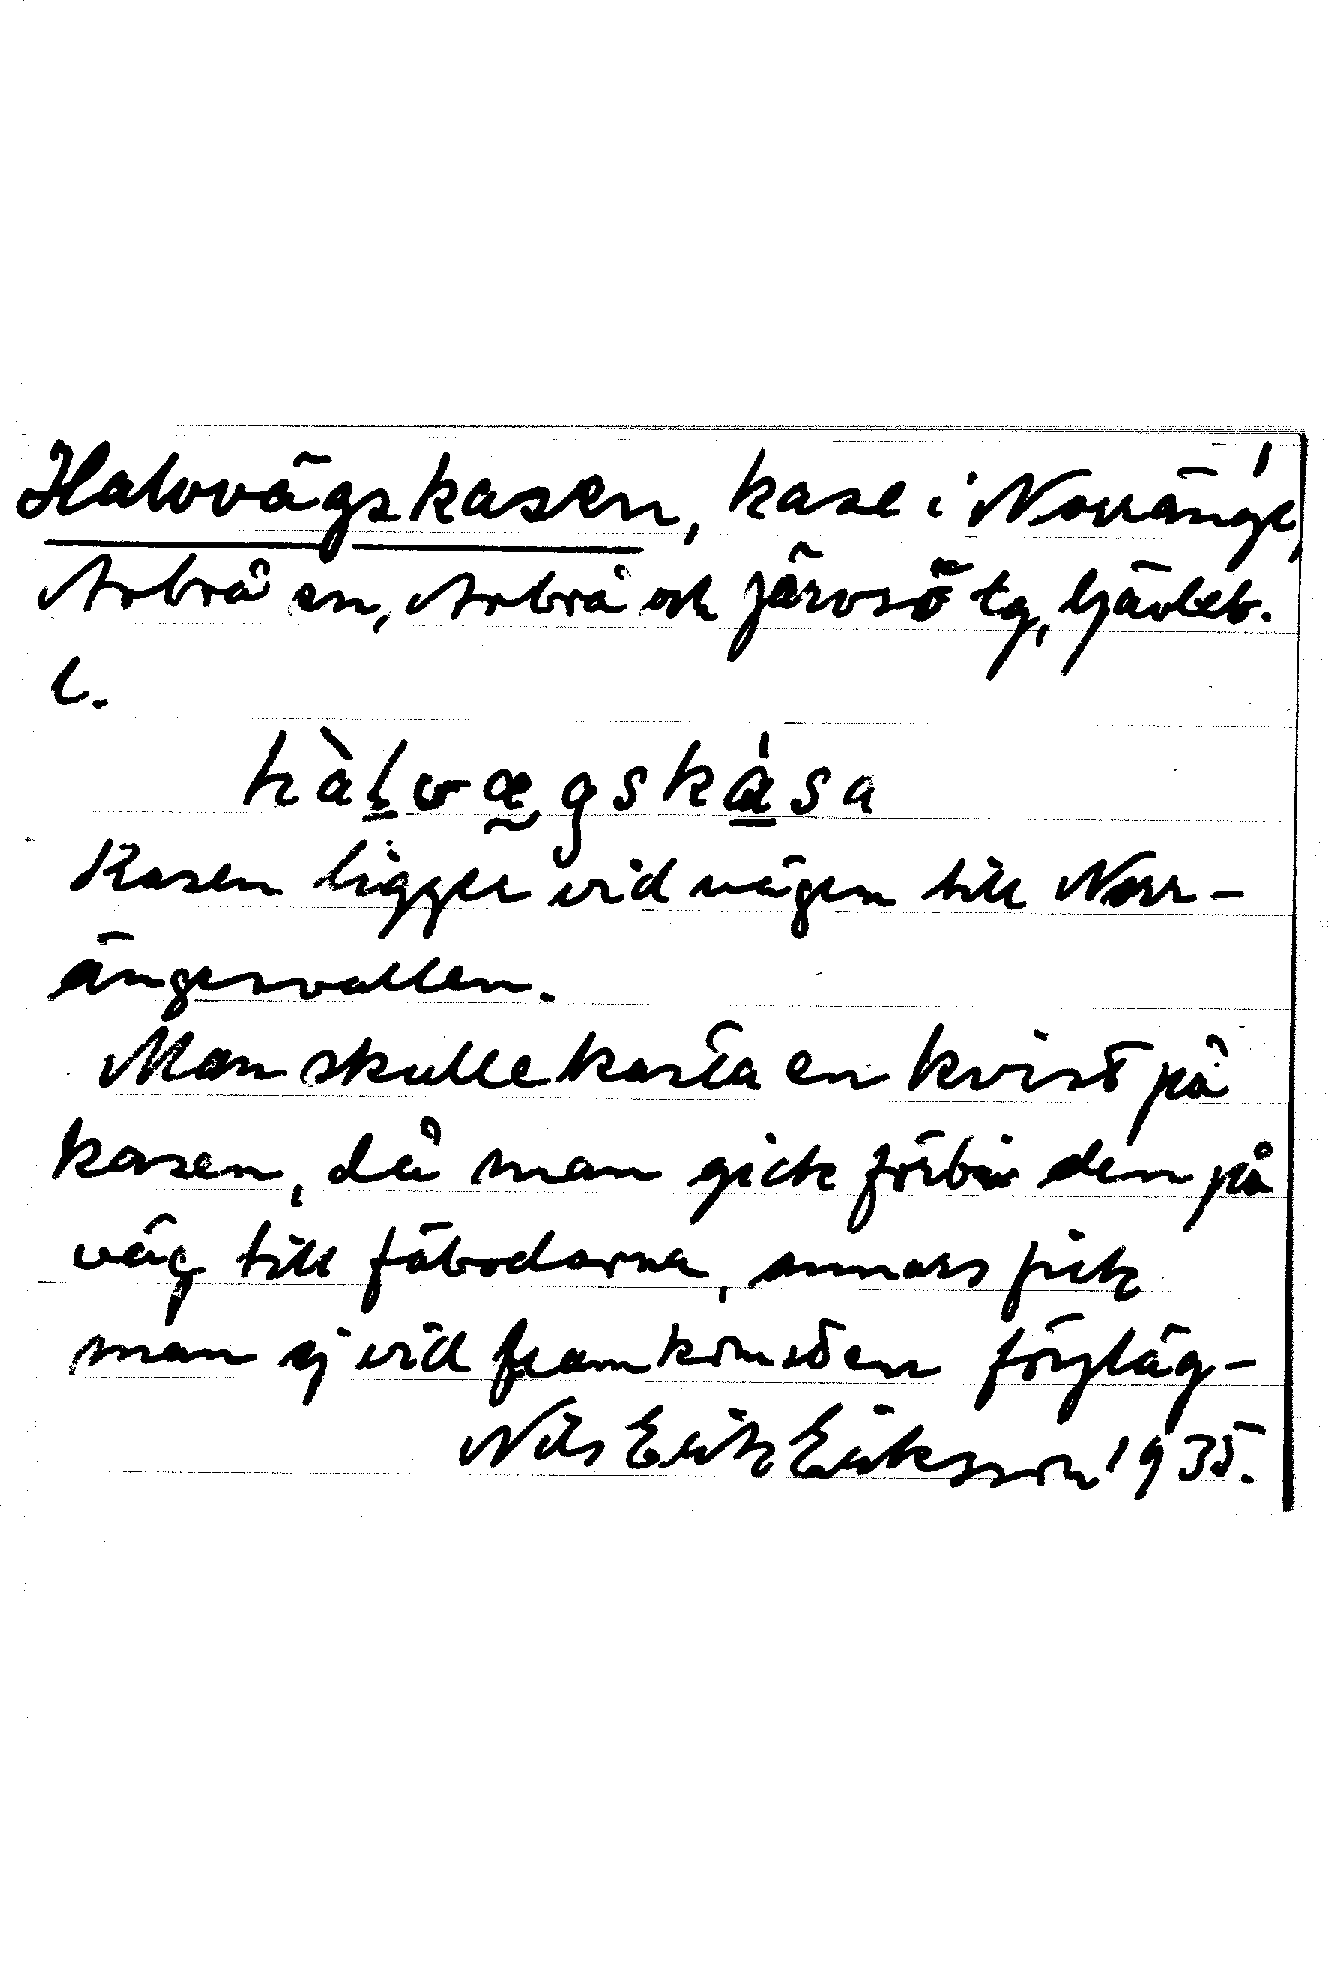 Halvvägskasen, kase i Norränge,
Arbrå sn, Arbrå och Järvsö tg, Gävleb.
l.
hàḻvæ̰gskása
Kasen ligger vid vägen till Norr-
ängesvallen.
Man skulle kasta en kvist på
kasen, då man gick förbi den på
väg till fäbodarna, annars fick
man ej vid framkomsten förpläg-
Nils Erik Eriksson 1935.